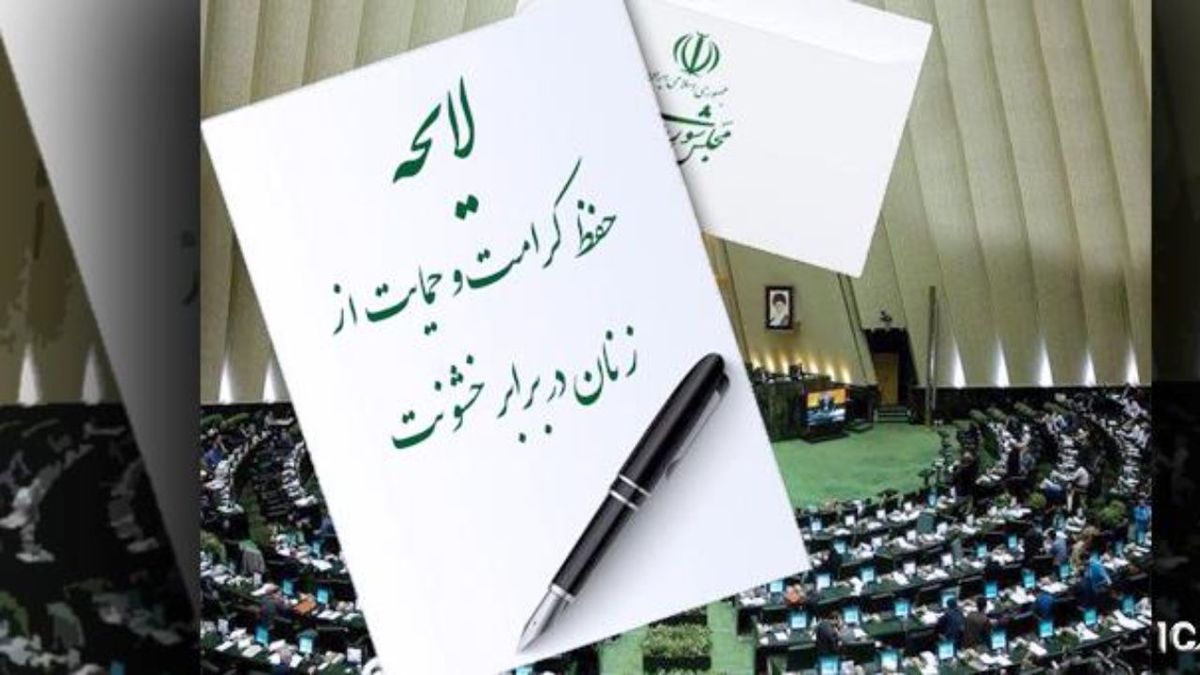 لایحه
حفظ کرامت و حمایت از
زنان در برابر خشونت
جمهوری اسلامی
مجلس شورای